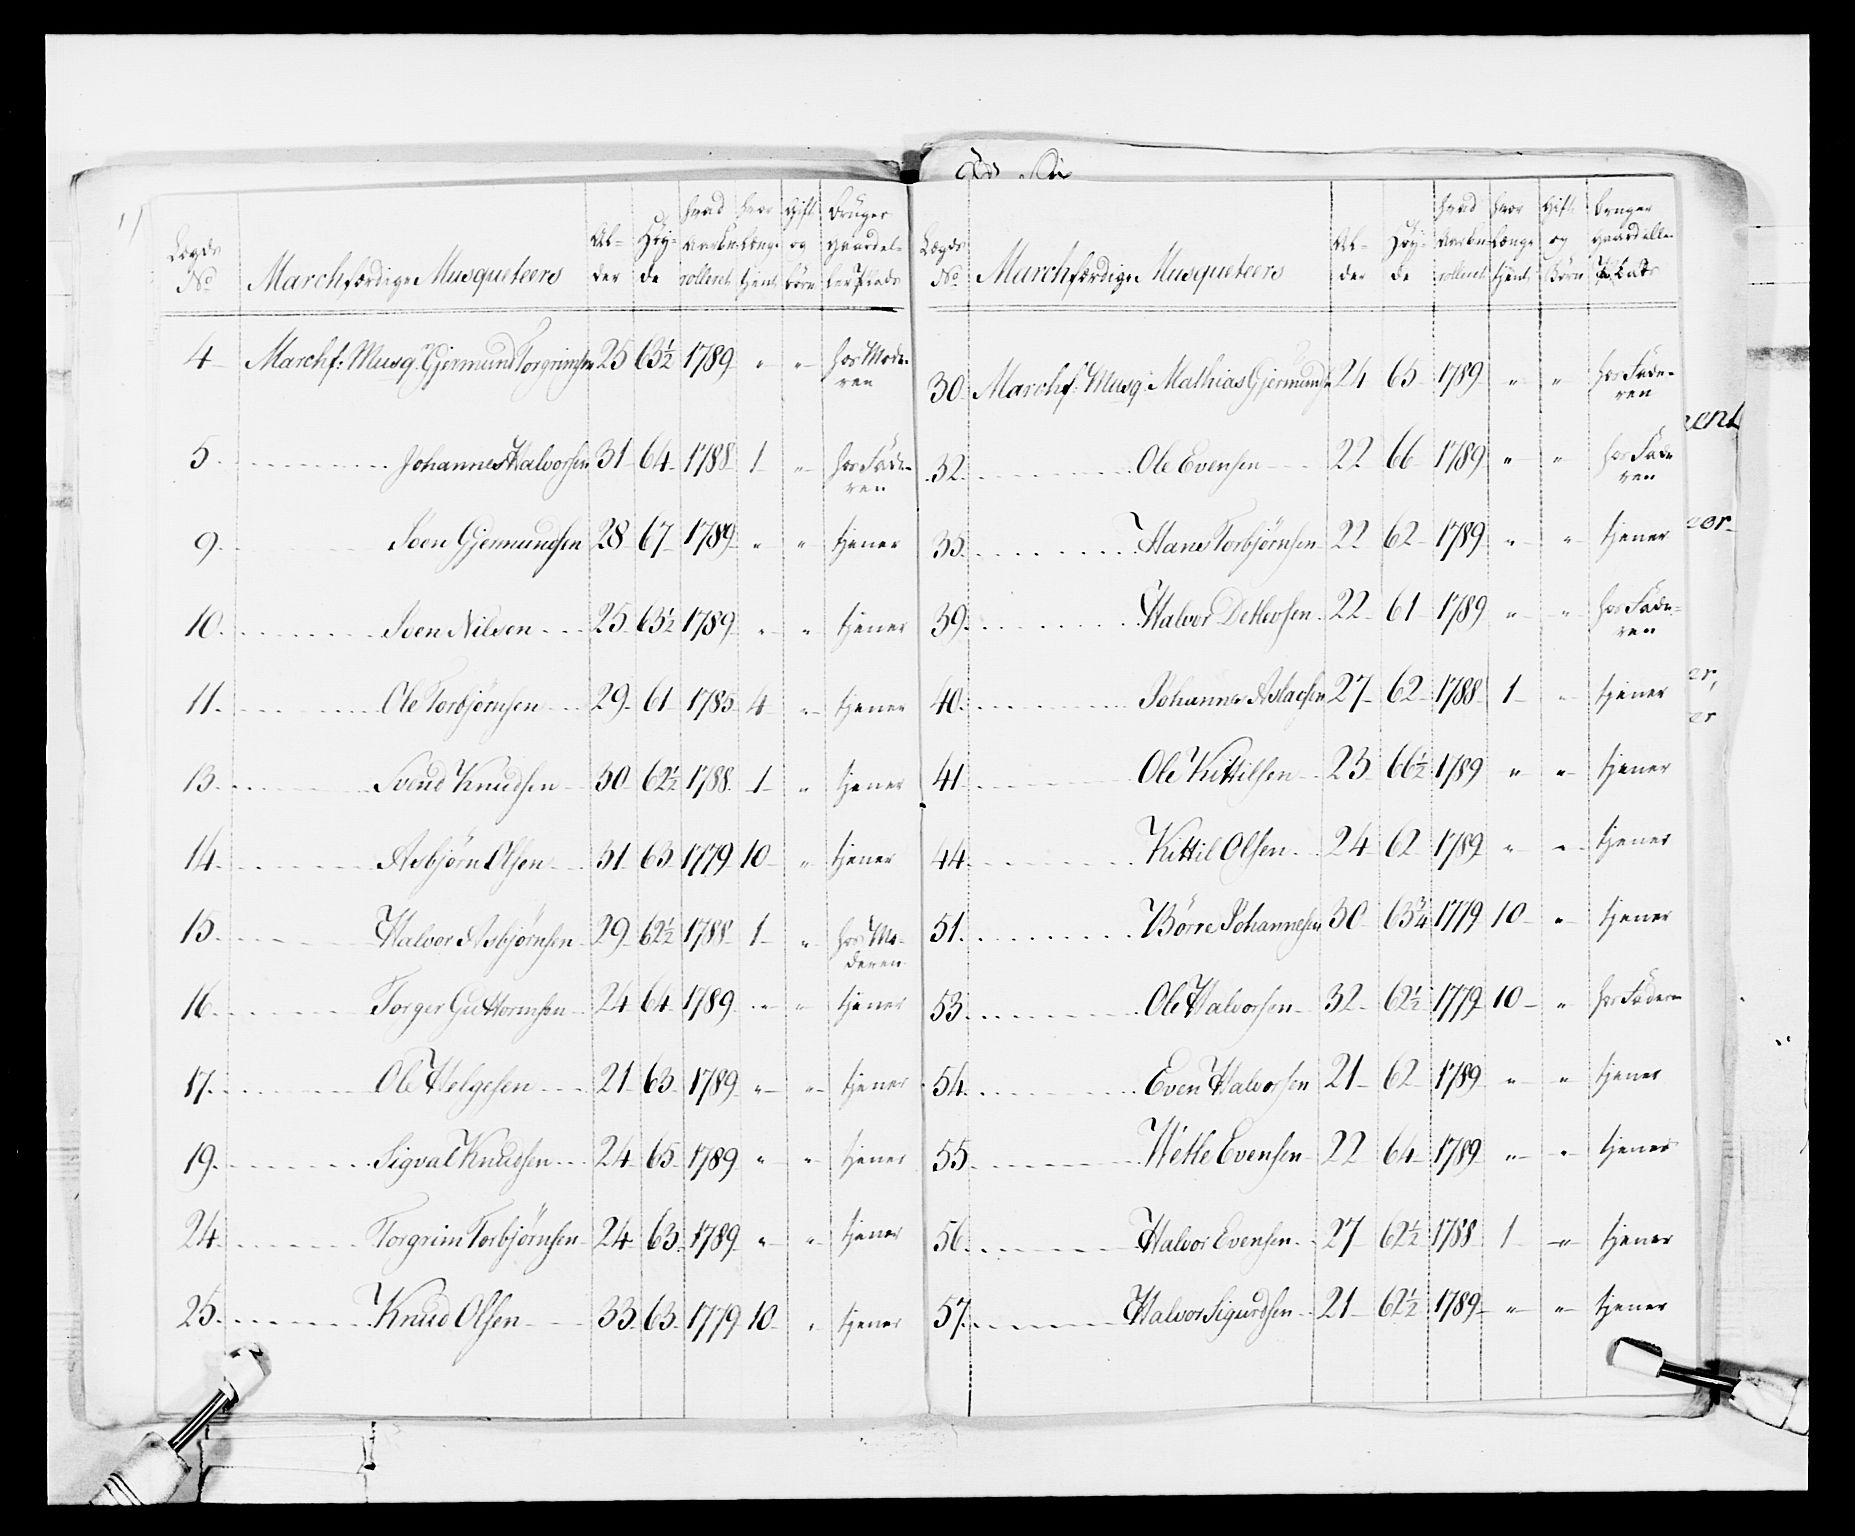 Lægds No | Marchfærdige Musqueteers | Al- der | Høy- de | hvad Aar Enrollent | hvor Længe tjent | Gift og børn | Bruger gaard el- ler Plads
4 Marchf: Musq: Gjermund Torgrimsen 25 63½ 1789 " " hos Mode- ren
5 Johannes Halvorsen 31 64 1788 1 " hos Fade- ren
9 Soen Gjermundsen 28 67 1789 " " tjener
10 Soen Nilsen 25 63½ 1789 " " tjener
11 Ole Torbjørnsen 29 61 1785 4 " tjener
13 Svend Knudsen 30 62½ 1788 1 " tjener
14 Asbjørn Olsen 31 63 1779 10 " tjener
15 Halvor Asbjørnsen 29 62½ 1788 1 " hos Mo- deren
16 Torger Guttormsen 24 64 1789 " " tjener
17 Ole Helgesen 21 63 1789 " " tjener
19 Sigval Knudsen 24 65 1789 " " tjener
24 Torgrim Torbjørnsen 24 63 1789 " " tjener
25 Knud Olsen 33 63 1779 10 " tjener
Lægds No | Marchfærdige Musqueteers | Al- der | Høy- de | hvad Aar Enrollent | hvor Længe tjent | Gift og Børn | bruger gaard eller Plads
30 Marchf: Musq: Mathias Gjermunds: 24 65 1789 " " hos Fade- ren
32 Ole Evensen 22 66 1789 " " hos Fade ren
35 Hans Torbjørnsen 22 62 1789 " " tjener
39 Halvor Detlevsen 22 61 1789 " " hos Fade- ren
40 Johannes Aslacsen 27 62 1788 1 " tjener
41 Ole Kittilsen 23 66½ 1789 " " tjener
44 Kittil Olsen 24 62 1789 " " tjener
51 Børre Johannesen 30 63¾ 1779 10 " tjener
53 Ole Halvorsen 32 62½ 1779 10 " hos Faderen
54 Even Halvorsen 21 62 1789 " " tjener
55 Wetle Evensen 22 64 1789 " " tjener
56 Halvor Evensen 27 62½ 1788 1 " tjener
57 Halvor Sigurdsen 21 62½ 1789 " " tjener